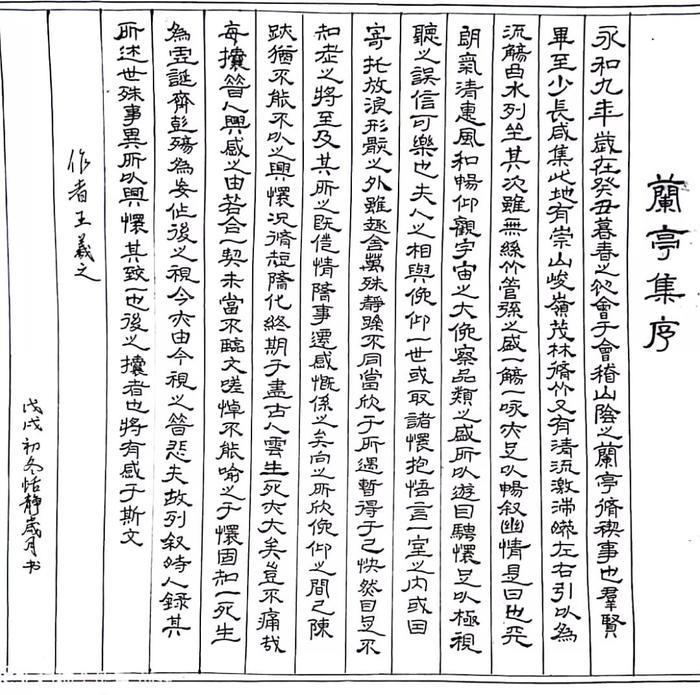 蘭亭集序
永和九年歲在癸丑暮春之初會于會稽山陰之蘭亭脩禊事也羣賢
畢至少長咸集此地有崇山峻嶺茂林脩竹又有清流激湍暎左右引以為
流觴曲水列坐其次雖無絲竹管弦之盛一觴一咏亦足以暢叙幽情是日也天
朗氣清惠風和暢仰觀宇宙之大俛察品類之盛所以遊目騁懷足以極視
聽之誤信可樂也夫人之相與俛仰一世或取諸懷抱悟言一室之内或因
寄托放浪形骸之外雖趣舍萬殊靜躁不同當欣于所遇暫得于己快然自足不
知老之將至及其所之既倦情隨事遷感慨係之矣向之所欣俛仰之間已陳
跡猶不能不以之興懷況脩短隨化終期于盡古人雲生死亦大矣豈不痛哉
每攬昔人興感之由若合一契未當不臨文嗟悼不能喻之于懷固知一死生
為虛誕齊彭殤為妄作後之視今亦由今視之昔悲夫故列叙時人錄其
所述世殊事異所以興懷其致一也後之攬者也將有感于斯文
作者王羲之
戊戌初冬恬靜歲月书